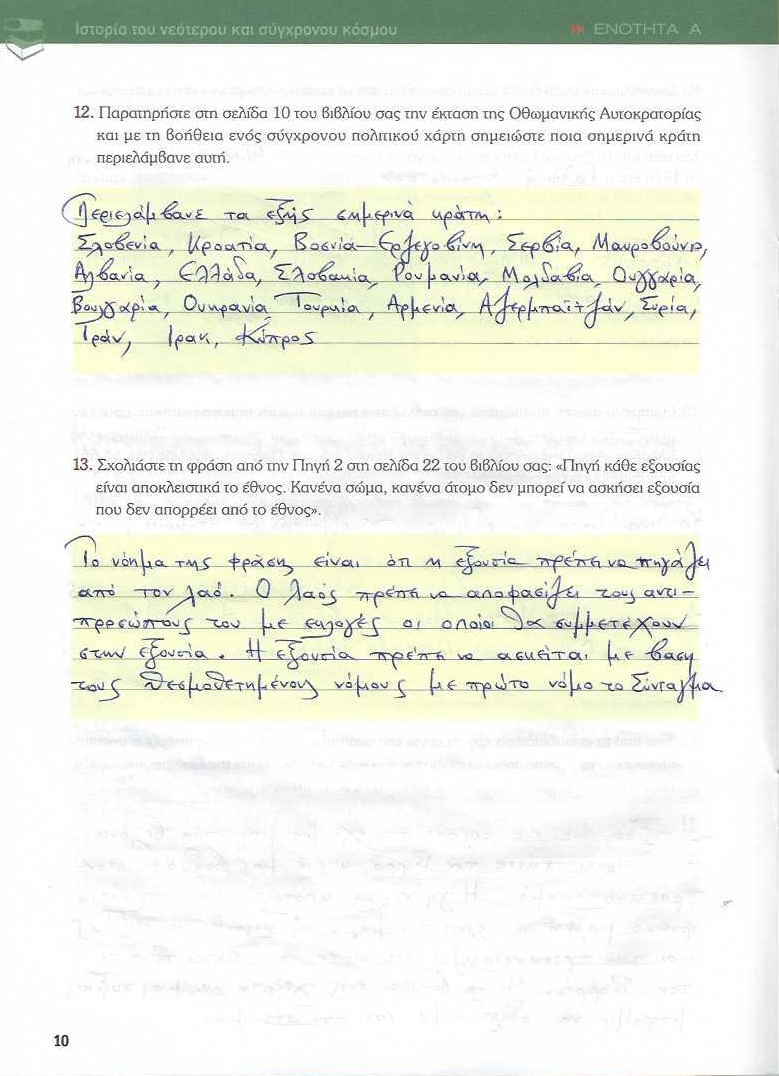 Ιστορία του νεότερου και σύγχρονου κόσμου
ΕΝΟΤΗΤΑ Α
12. Παρατηρήστε στη σελίδα 10 του βιβλίου σας την έκταση της Οθωμανικής Αυτοκρατορίας
και με τη βοήθεια ενός σύγχρονου πολιτικού χάρτη σημειώστε ποια σημερινά κράτη
περιελάμβανε αυτή.
Περιελάμβανε τα εξής σημερινά κράτη:
Σλοβενία, Κροατία, Βοσνία-Ερζεγοβίνη, Σερβία, Μαυροβούνιο,
Αλβανία, Ελλάδα, Σλοβακία, Ρουμανία, Μολδαβία, Ουγγαρία,
Βουλγαρία, Ουκρανία, Τουρκία, Αρμενία, Αζερμπαϊτζάν, Συρία,
Ιράν, Ιρακ, Κύπρος
13. Σχολιάστε τη φράση από την Πηγή 2 στη σελίδα 22 του βιβλίου σας: «Πηγή κάθε εξουσίας
είναι αποκλειστικά το έθνος. Κανένα σώμα, κανένα άτομο δεν μπορεί να ασκήσει εξουσία
που δεν απορρέει από το έθνος».
Το νόημα της φράσης είναι ότι η εξουσία πρέπει να πηγάζει
από τον λαό. Ο λαός πρέπει να αποφασίζει τους αντι-
προσώπους του με εκλογές οι οποίοι θα συμμετέχουν
στην εξουσία. Η εξουσία πρέπει να ασκείται με βαση
τους θεσμοθετημένους νόμους με πρώτο νόμο το Σύνταγμα
10